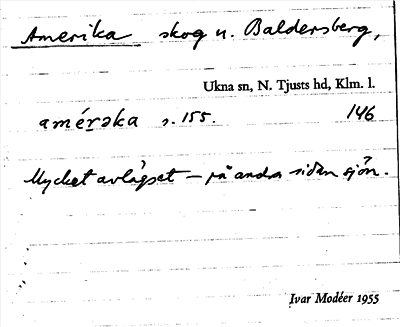 Amerika skog u. Baldersberg,
Ukna sn, N. Tjusts hd, Klm. l.
amérəka s. 155. 146
Mycket avlägset – på andra sidan sjön.
Ivar Modéer 1955